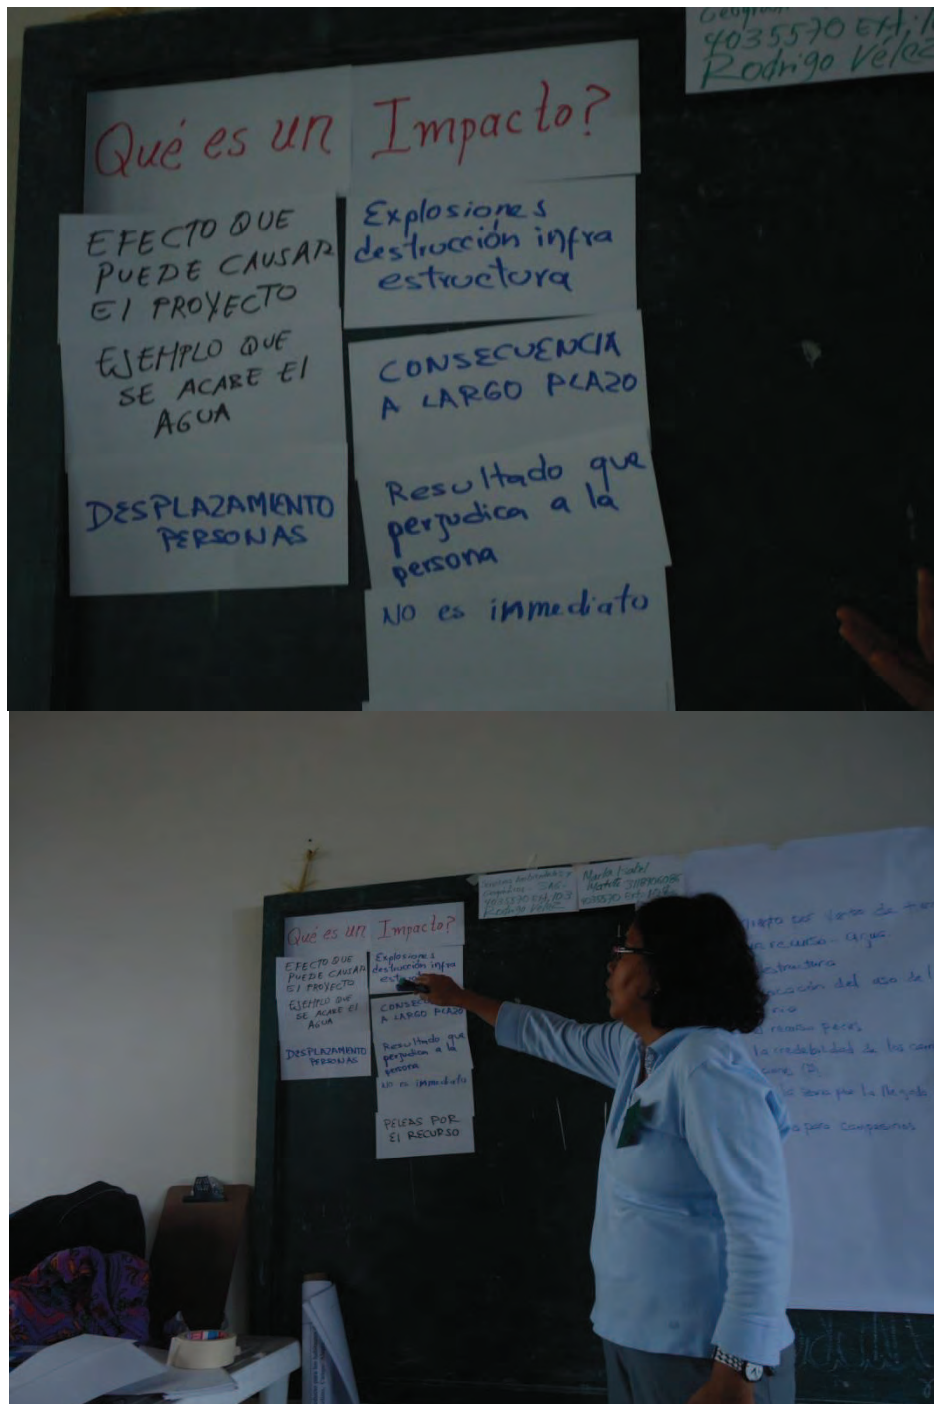 4035570 Ext:
Rodrigo Véle
Qué es un Impacto?
EFECTO QUE
PUEDE CAUSAR
El PROYECTO
EJEMPLO QUE
SE ACABE El
AGUA
DESPLAZAMIENTO
PERSONAS
Explosiones
destrucción infra
estructura
CONSECUENCIA
A LARGO PLAZO
Resultado que
perjudica a la
persona
NO es immediato
4035570 Ext. 103
Rodrigo Vélez
4035570 Ext.
Qué es un Impacto?
EFECTO QUE
PUEDE CAUSAR
El PROYECTO
EJEMPLO QUE
SE ACABE El
AGUA
DESPLAZAMIENTO
PERSONAS
Explosiones
destrucción infra
CONSE
A LARGO PLAZO
Resultado que
perjudica a la
persona
NO es immediato
PELEAS POR
El RECURSO
recurso - agua.
structura
del uso de l
peces
la credebilidad de los
por la llegada
para campesinos